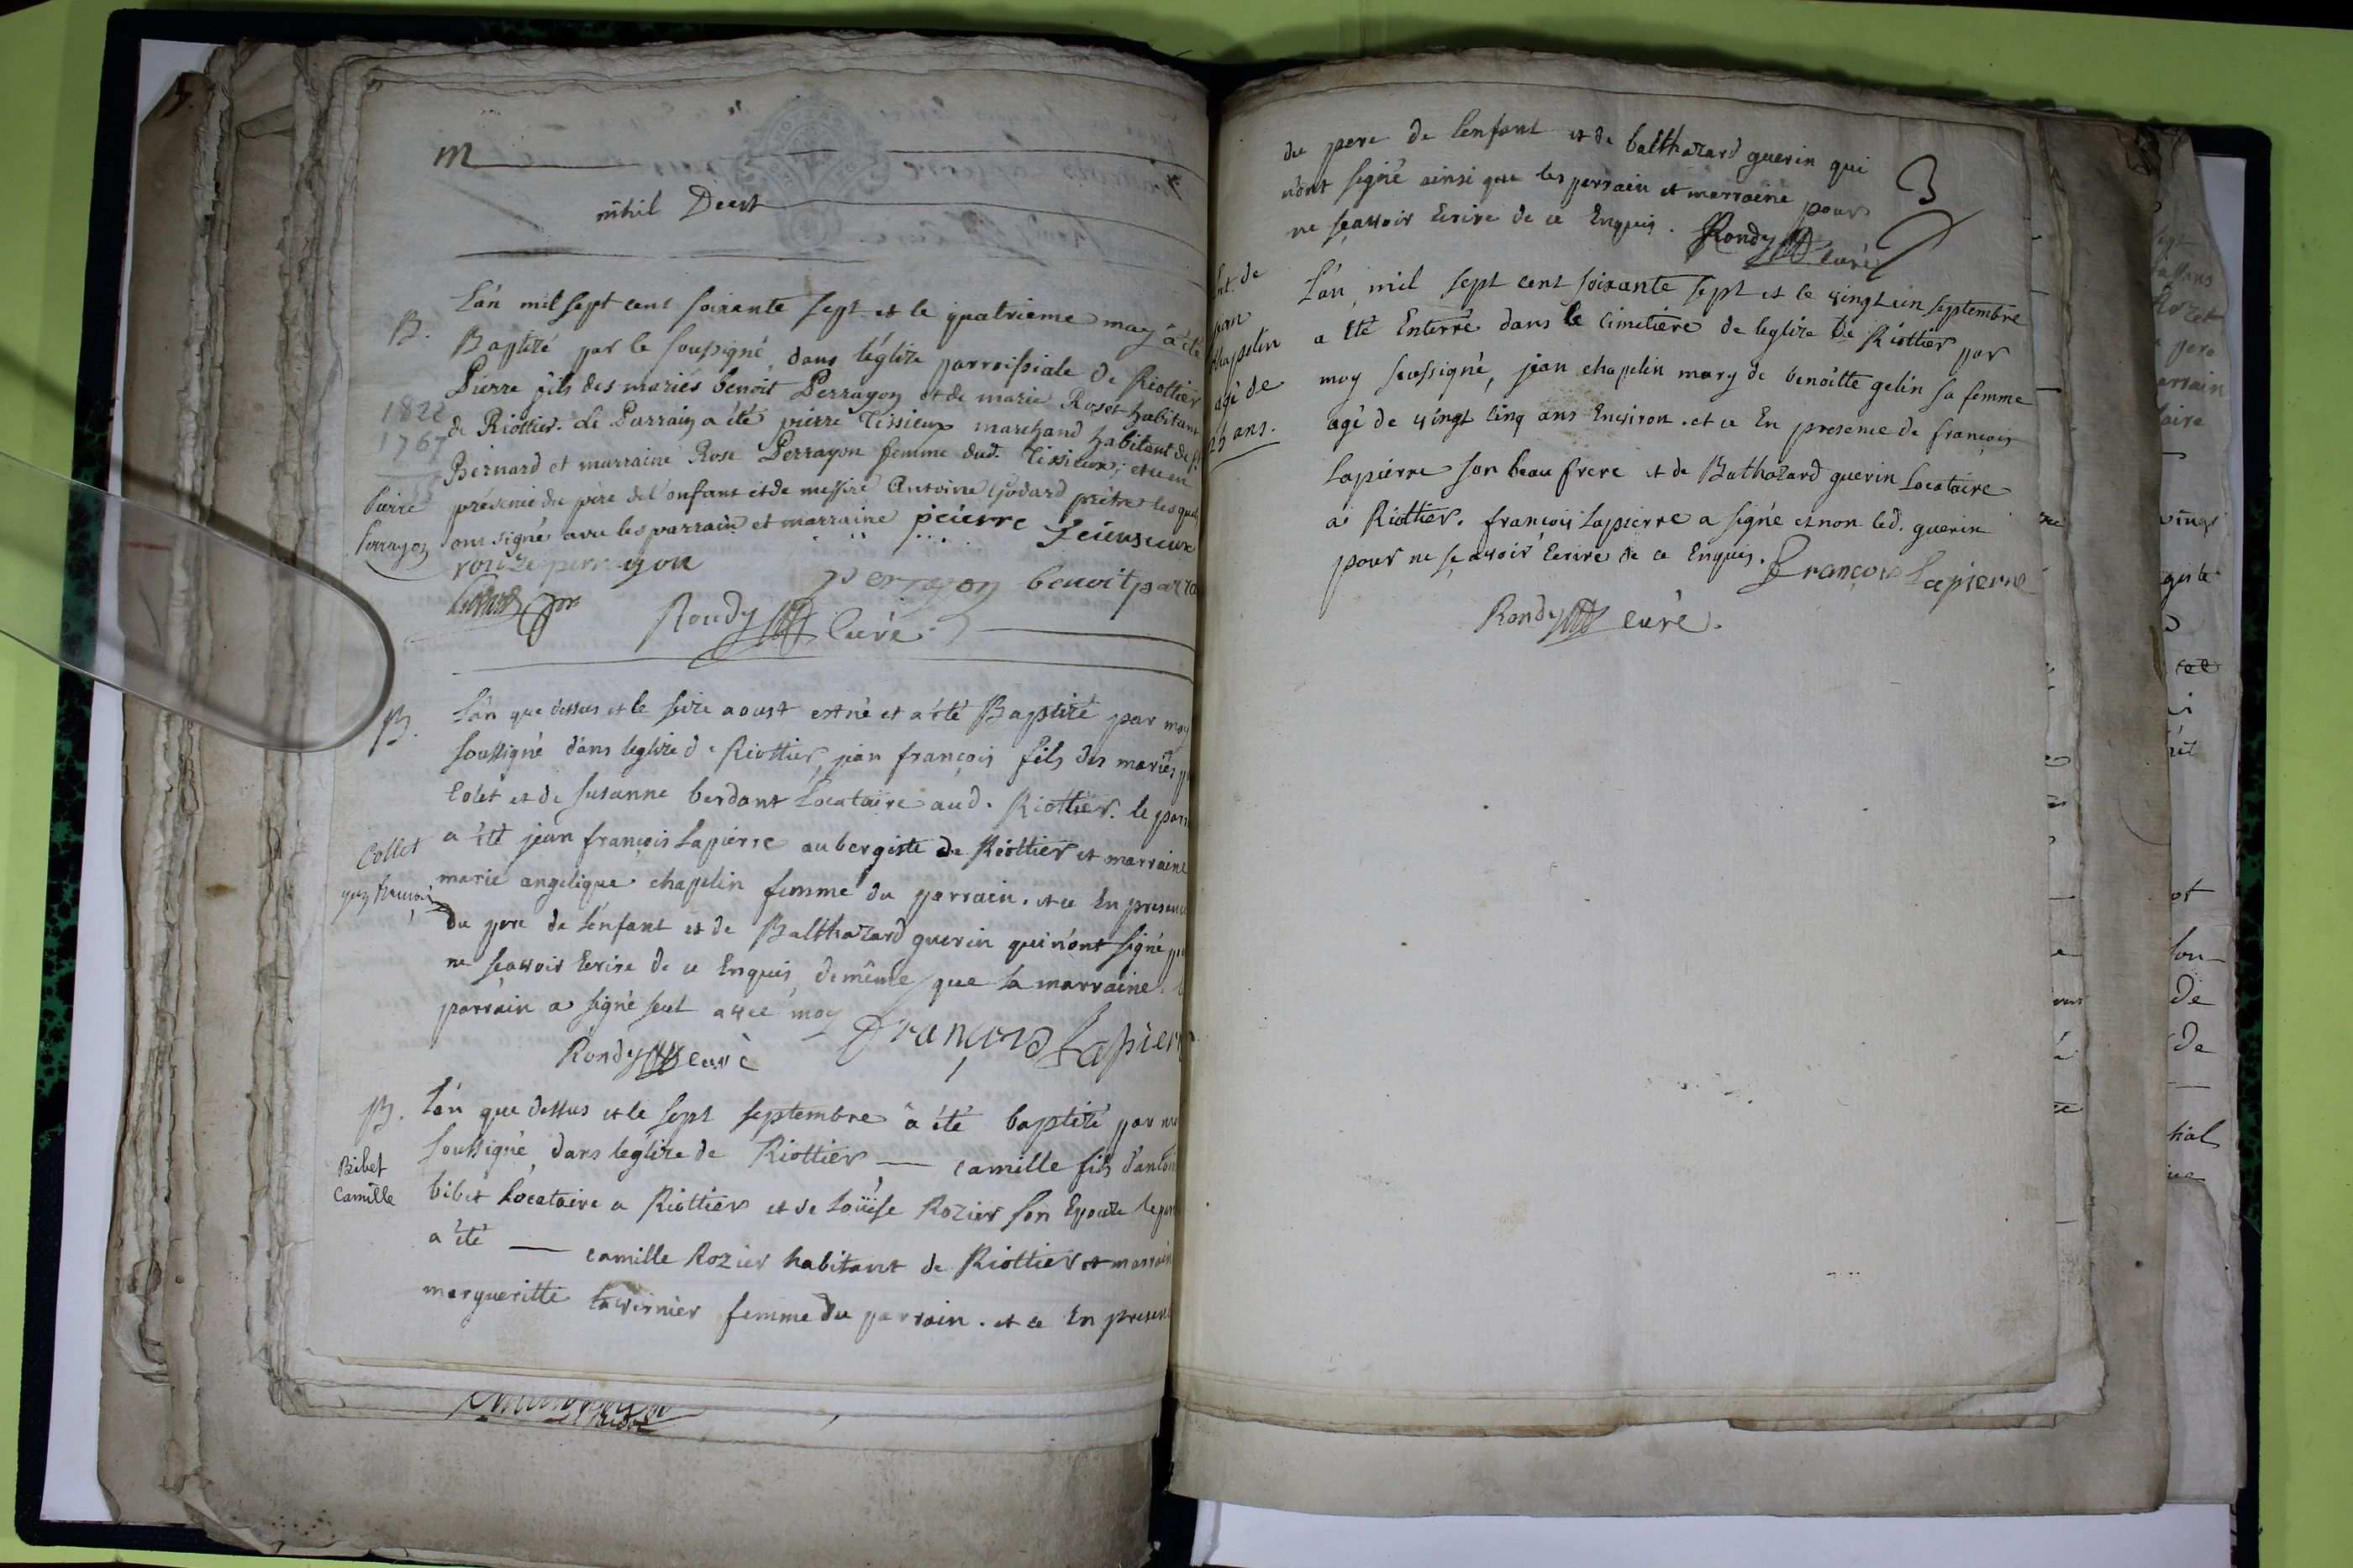 m
nihil Deest
B.
L'an mil sept cent soixante sept et le quatrieme may a été
Baptizé par le soussigné, dans l'églize parroissiale de Riottier
Pierre fils des mariés benoit Perrayon et de marie Roset habitant
1822
1767
de Riottier. Le Parrain a été pierre Tissieux marchand habitant de St
Bernard et marraine Rose Perrayon femme dud. Tissieux; et ce en
Pierre
Perrayon
présence du père de l'enfant et de messire Antoine Godard prêtre lesquels
ont signé avec les parrain et marraine peierre
perrayon
perrayon benoit
Rondy curé
B.
L'an que dessus et le seize aoust est né et a été Baptizé par moy
soussigné dans leglize de Riottier, jean françois fils des mariés
Colet et de susanne berdant Locataire aud. Riottier. le parr
Collet
a été jean françois Lapierre aubergiste de Riottier et marraine
marie angelique chapelin femme du parrain. et ce En presence
du pere de l'enfant et de Balthazard guerin qui n'ont signé
ne scavoir Ecrire de ce Enquis, de même que la marraine.
parrain a signé seul avec moy François Lapier
Rondy curé
B.
L'an que dessus et le sept septembre a été baptizé par
soussigné dans leglize de Riottier — camille fils d'antoi
Bibet
Camille
bibet Locataire a Riottier et de Loüise Rozier son Epouze le par
a été — camille Rozier habitant de Riottier et marrain
margueritte Lavernier femme du parrain. et ce En presen
3
du pere de l'enfant et de balthazard guerin qui
n'ont signé ainsi que les parrain et marraine pour
ne sçavoir Ecrire de ce Enquis. Rondy curé
Ent. de
jean
chapelin
agé de
25 ans.
L'an mil sept cent soixante sept et le vingt un septembre
a été Enterré dans le Cimetière de leglize de Riottier par
moy soussigné, jean chapelin mary de benoitte gelin sa femme
agé de vingt cinq ans Environ. et ce En presence de françois
Lapierre son beau frere et de Bathazard guerin Locataire
a Riottier. françois Lapierre a signé et non led. guerin
pour ne sçavoir Ecrire de ce Enquis. François Lapierre
Rondy curé.